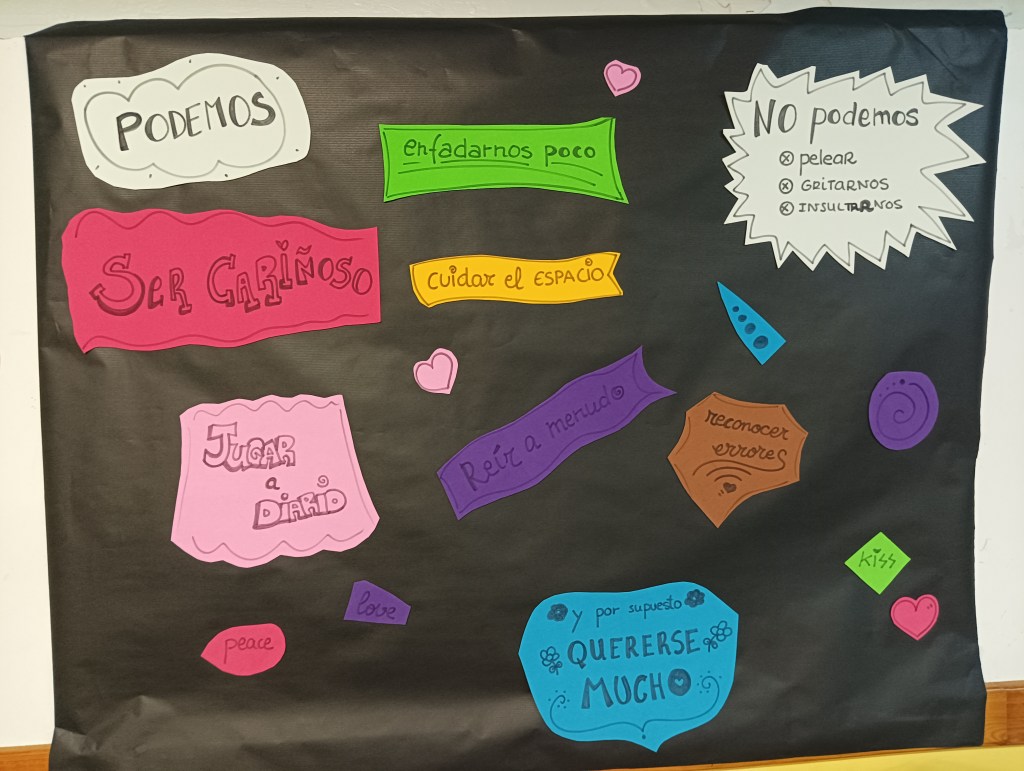 PODEMOS
enfadarnos poco
NO podemos
pelear
GRITARNOS
INSULTARNOS
SER CARIÑOSO
CUidar el ESPACIO
JUGAR
a
DIARIO
Reír a menudo
reconocer
errores
kiss
love
peace
y por supuesto
QUERERSE
MUCHO